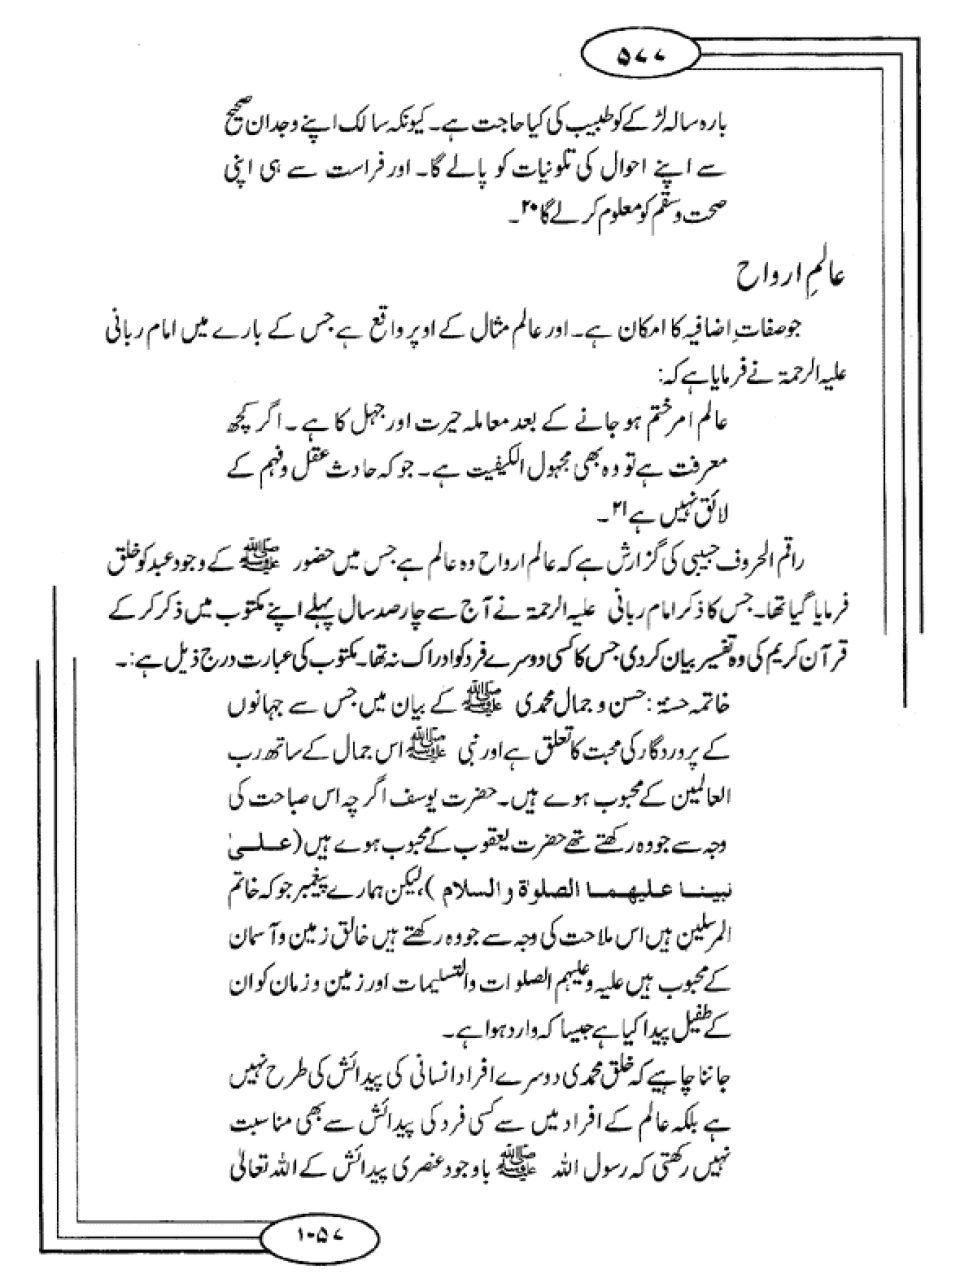 ۵۷۷
بارہ سالہ لڑکے کو طبیب کی کیا حاجت ہے۔ کیونکہ سالک اپنے وجدان صحیح
سے اپنے احوال کی تلونیات کو پالے گا۔ اور فراست سے ہی اپنی
صحت و سقم کو معلوم کرلے گا ۲۰۔
عالمِ ارواح
جو صفاتِ اضافیہ کا امکان ہے۔ اور عالم مثال کے اوپر واقع ہے جس کے بارے میں امام ربانی
علیہ الرحمۃ نے فرمایا ہے کہ:
عالم امر ختم ہو جانے کے بعد معاملہ حیرت اور جہل کا ہے۔ اگر کچھ
معرفت ہے تو وہ بھی مجہول الکیفیت ہے۔ جو کہ حادث عقل و فہم کے
لائق نہیں ہے ۲۱۔
راقم الحروف حبیبی کی گزارش ہے کہ عالم ارواح وہ عالم ہے جس میں حضور ﷺ کے وجود عبد کو خلق
فرمایا گیا تھا۔ جس کا ذکر امام ربانی علیہ الرحمۃ نے آج سے چار صد سال پہلے اپنے مکتوب میں ذکر کر کے
قرآن کریم کی وہ تفسیر بیان کر دی جس کا کسی دوسرے فرد کو ادراک نہ تھا۔ مکتوب کی عبارت درج ذیل ہے:۔
خاتمہ حسنۃ: حسن و جمال محمدی ﷺ کے بیان میں جس سے جہانوں
کے پروردگار کی محبت کا تعلق ہے اور نبی ﷺ اس جمال کے ساتھ رب
العالمین کے محبوب ہوے ہیں۔ حضرت یوسف اگرچہ اس صباحت کی
وجہ سے جو وہ رکھتے تھے حضرت یعقوب کے محبوب ہوے ہیں (علیٰ
نبینا علیہما الصلوۃ والسلام)، لیکن ہمارے پیغمبر جو کہ خاتم
المرسلین ہیں اس ملاحت کی وجہ سے جو وہ رکھتے ہیں خالق زمین و آسمان
کے محبوب ہیں علیہ وعلیہم الصلوات والتسلیمات اور زمین و زمان کو ان
کے طفیل پیدا کیا ہے جیسا کہ وارد ہوا ہے۔
جاننا چاہیے کہ خلق محمدی دوسرے افراد انسانی کی پیدائش کی طرح نہیں
ہے بلکہ عالم کے افراد میں سے کسی فرد کی پیدائش سے بھی مناسبت
نہیں رکھتی کہ رسول اللہ ﷺ باوجود عنصری پیدائش کے اللہ تعالیٰ
۱۰۵۷